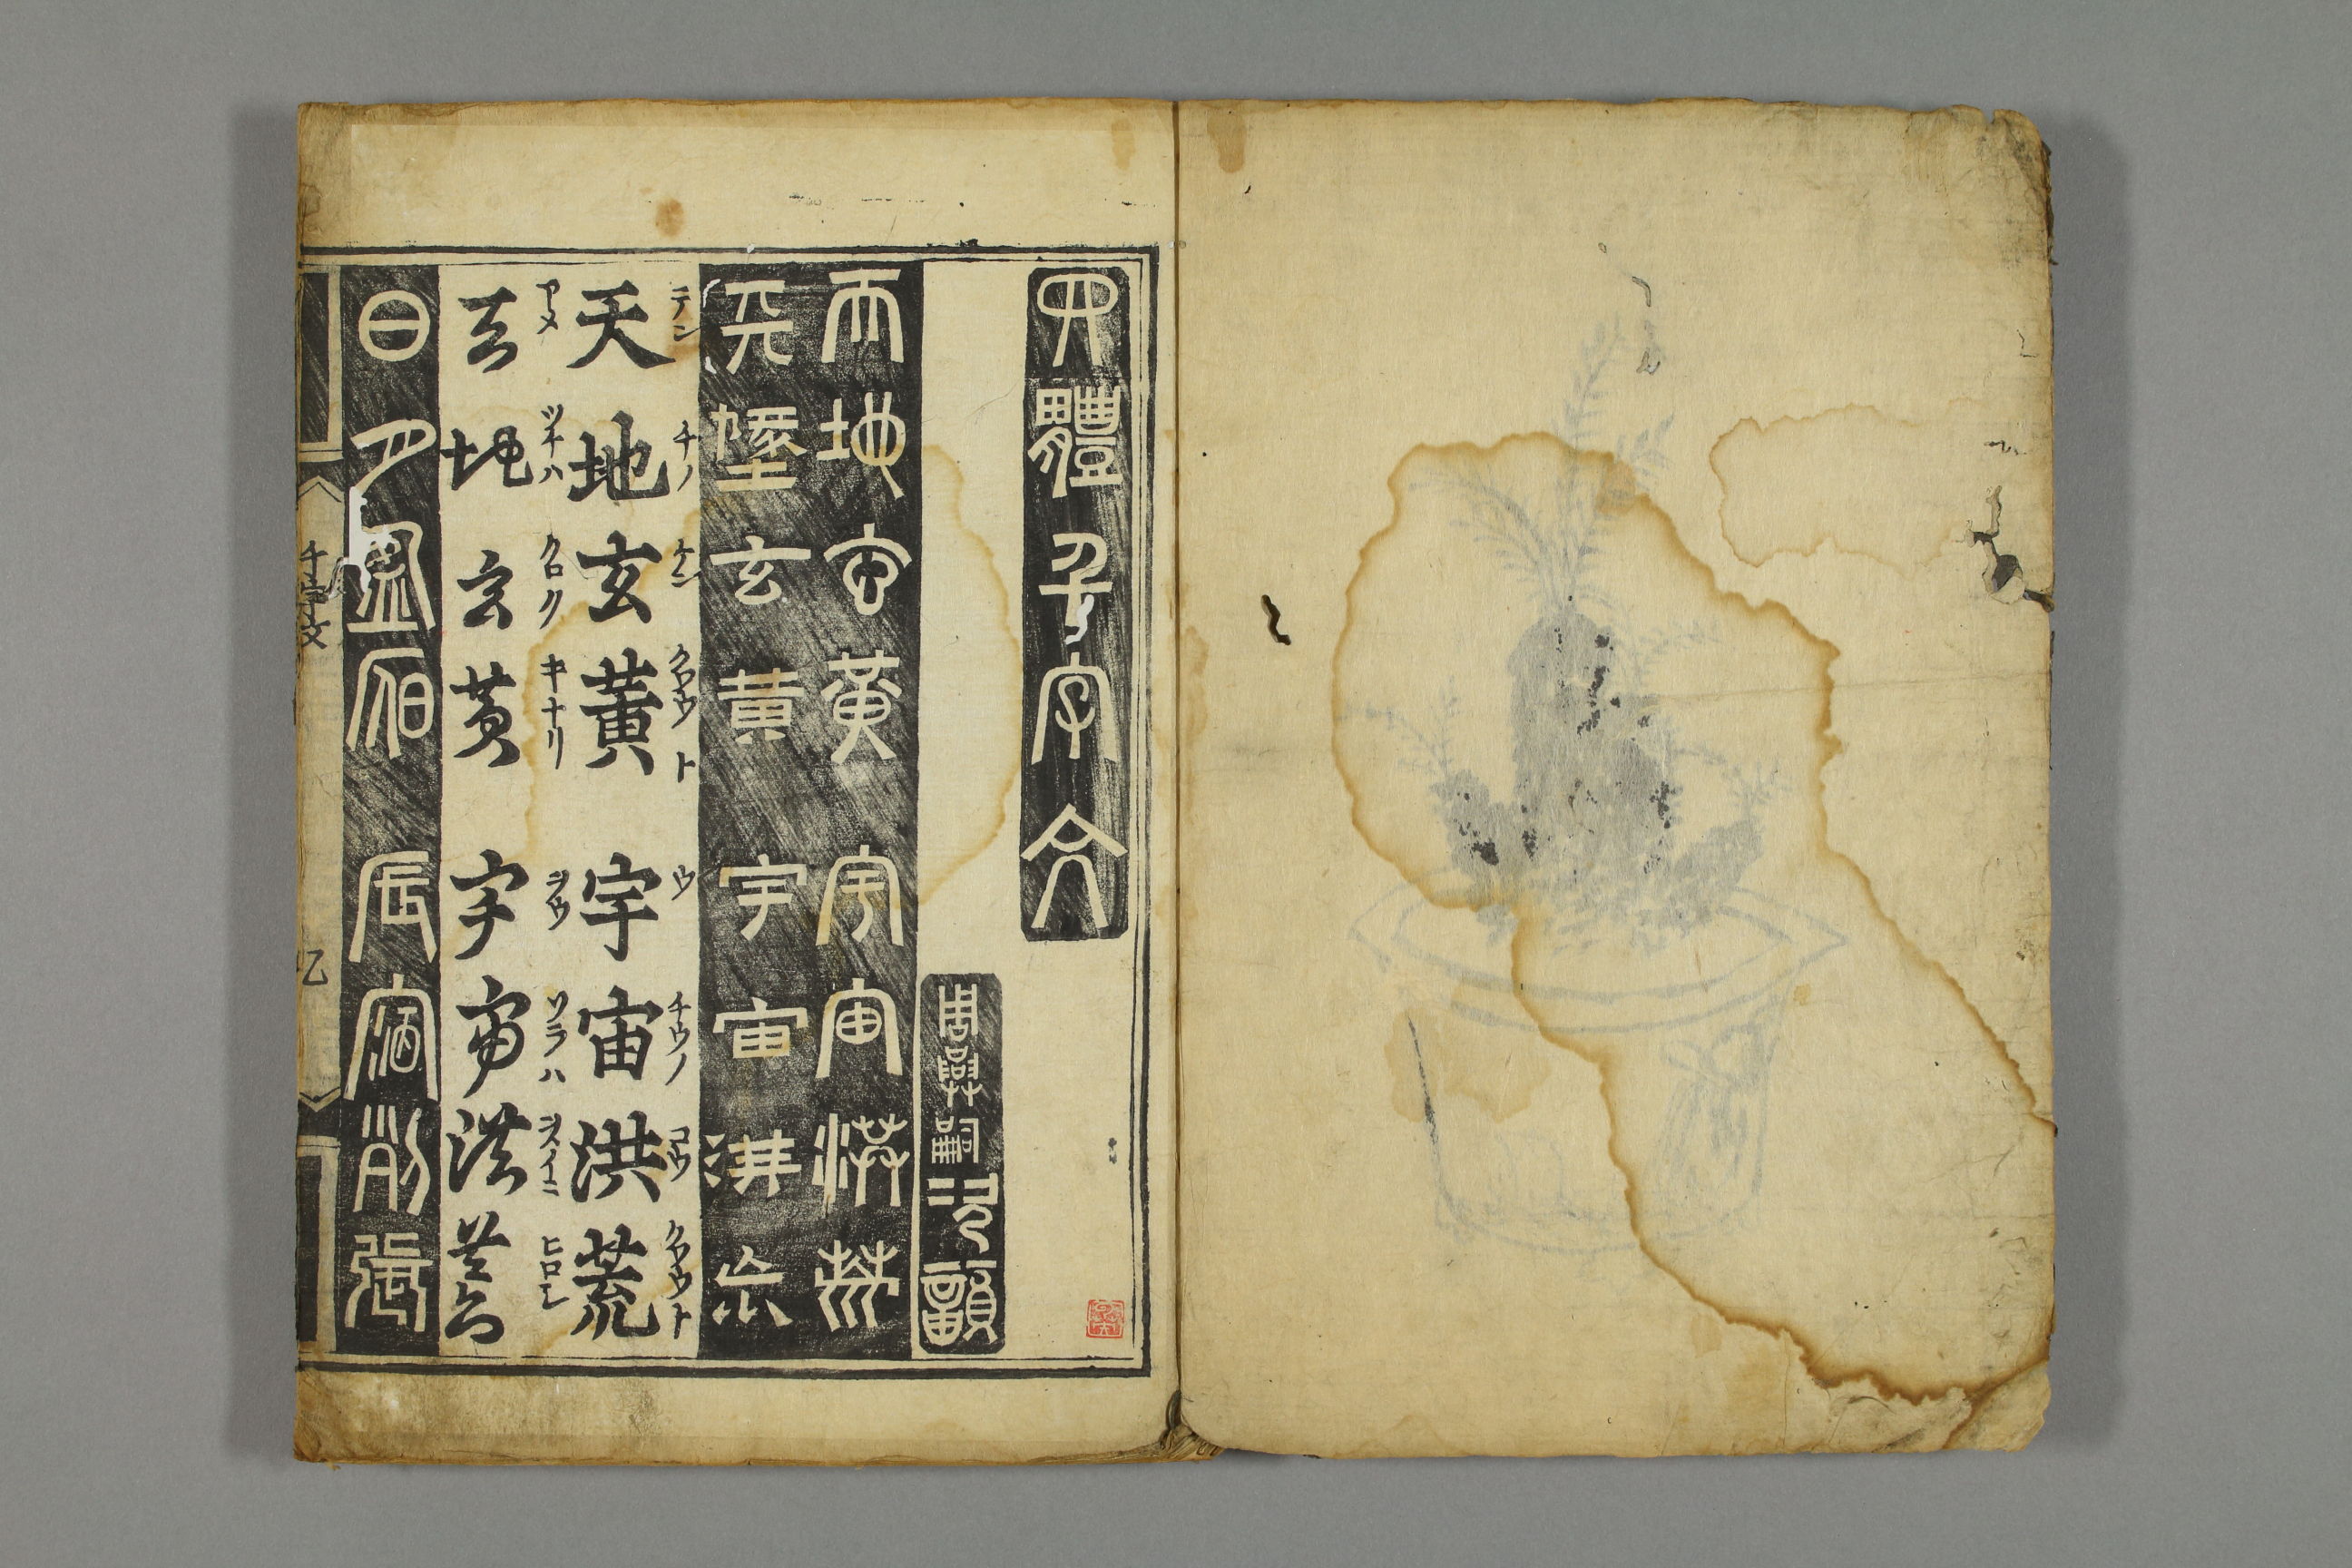 四體千字文
周興嗣次韻
天地玄黃宇宙洪荒
天地玄黃宇宙洪荒
テン チノ ケン クワウト ウ チウノ コウ クワウト
天地玄黃宇宙洪荒
アメ ツチハ クロク キナリ ソラハ ヒロシ
天地玄黃宇宙洪荒
日月盈昃辰宿列張
千字文
乙